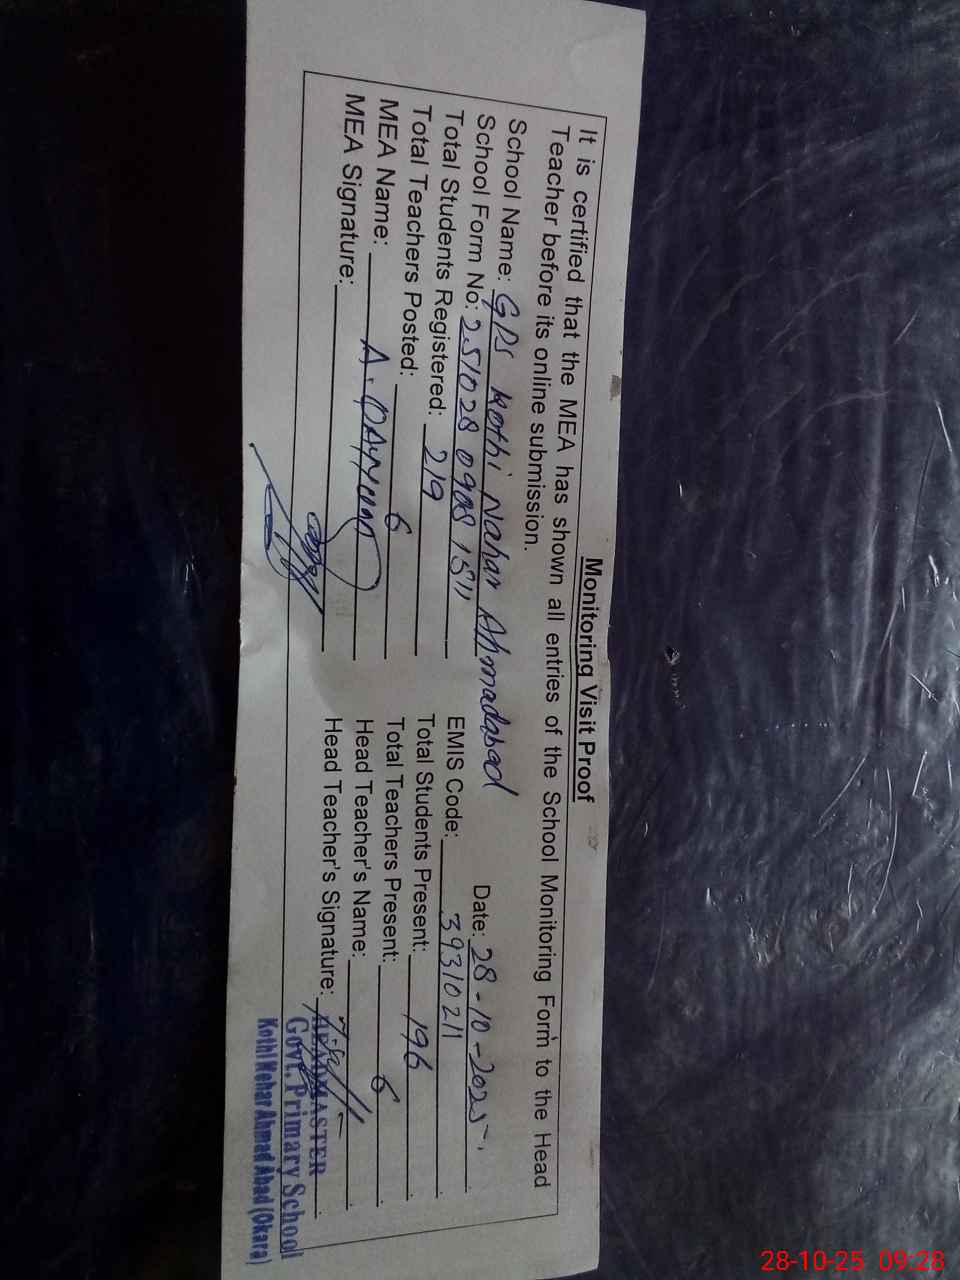 Monitoring Visit Proof
It is certified that the MEA has shown all entries of the School Monitoring Form to the Head
Teacher before its online submission.
School Name: GPS Kothi Nahar Ahmadabad Date: 28-10-2025
School Form No: 251028 0908 1511 EMIS Code: 39310211
Total Students Registered: 219 Total Students Present: 196
Total Teachers Posted: 6 Total Teachers Present: 6
MEA Name: A. QAYYUM Head Teacher's Name:
MEA Signature: Head Teacher's Signature:
HEADMASTER
Govt. Primary School
Kothi Nehar Ahmad Abad (Okara)
28-10-25 09:28